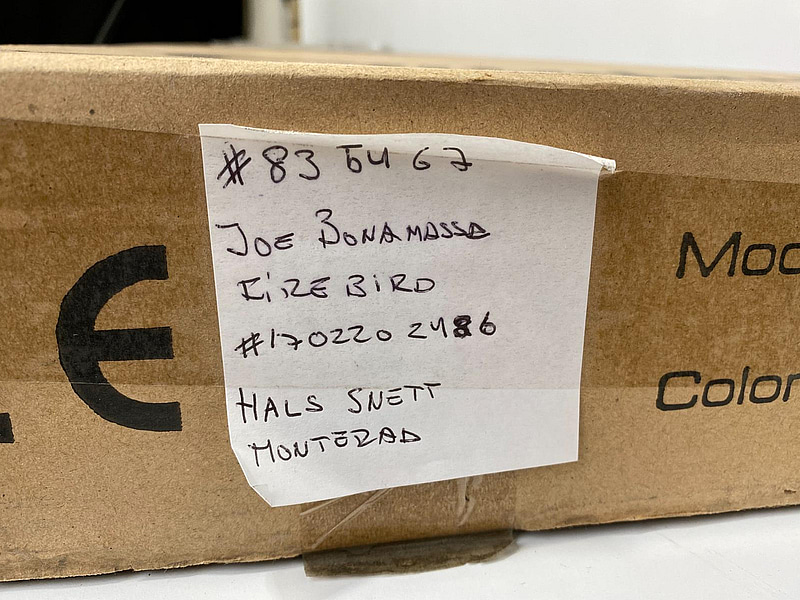 #83 5467
JOE BONAMASSA
FIREBIRD
#1702202486
HALS SNETT
MONTERAD
CE
Mod
Color